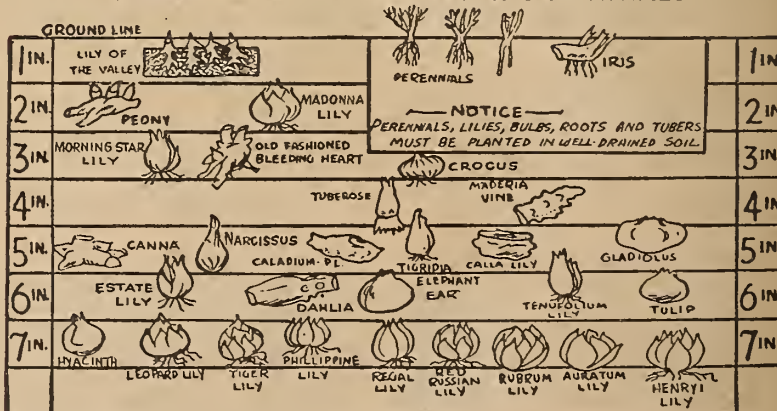 GROUND LINE
1 IN.
LILY OF
THE VALLEY
PERENNIALS
IRIS
1 IN
2 IN.
PEONY
MADONNA
LILY
NOTICE
PERENNALS, LILIES, BULBS, ROOTS AND TUBERS
MUST BE PLANTED IN WELL-DRAINED SOIL
2 IN
3 IN.
MORNING STAR
LILY
OLD FASHIONED
BLEEDING HEART
CROCUS
3 IN
4 IN.
TUBEROSE
MADERIA
VINE
4 IN
5 IN.
CANNA
NARCISSUS
CALADIUM-PL.
TIGRIDIA
CALLA LILY
GLADIOLUS
5 IN
6 IN.
ESTATE
LILY
DAHLIA
ELEPHANT
EAR
TENUFOLIUM
LILY
TULIP
6 IN
7 IN.
HYACINTH
LEOPARD LILY
TIGER
LILY
PHILLIPPINE
LILY
REGAL
LILY
RED
RUSSIAN
LILY
RUBRUM
LILY
AURATUM
LILY
HENRYI
LILY
7 IN